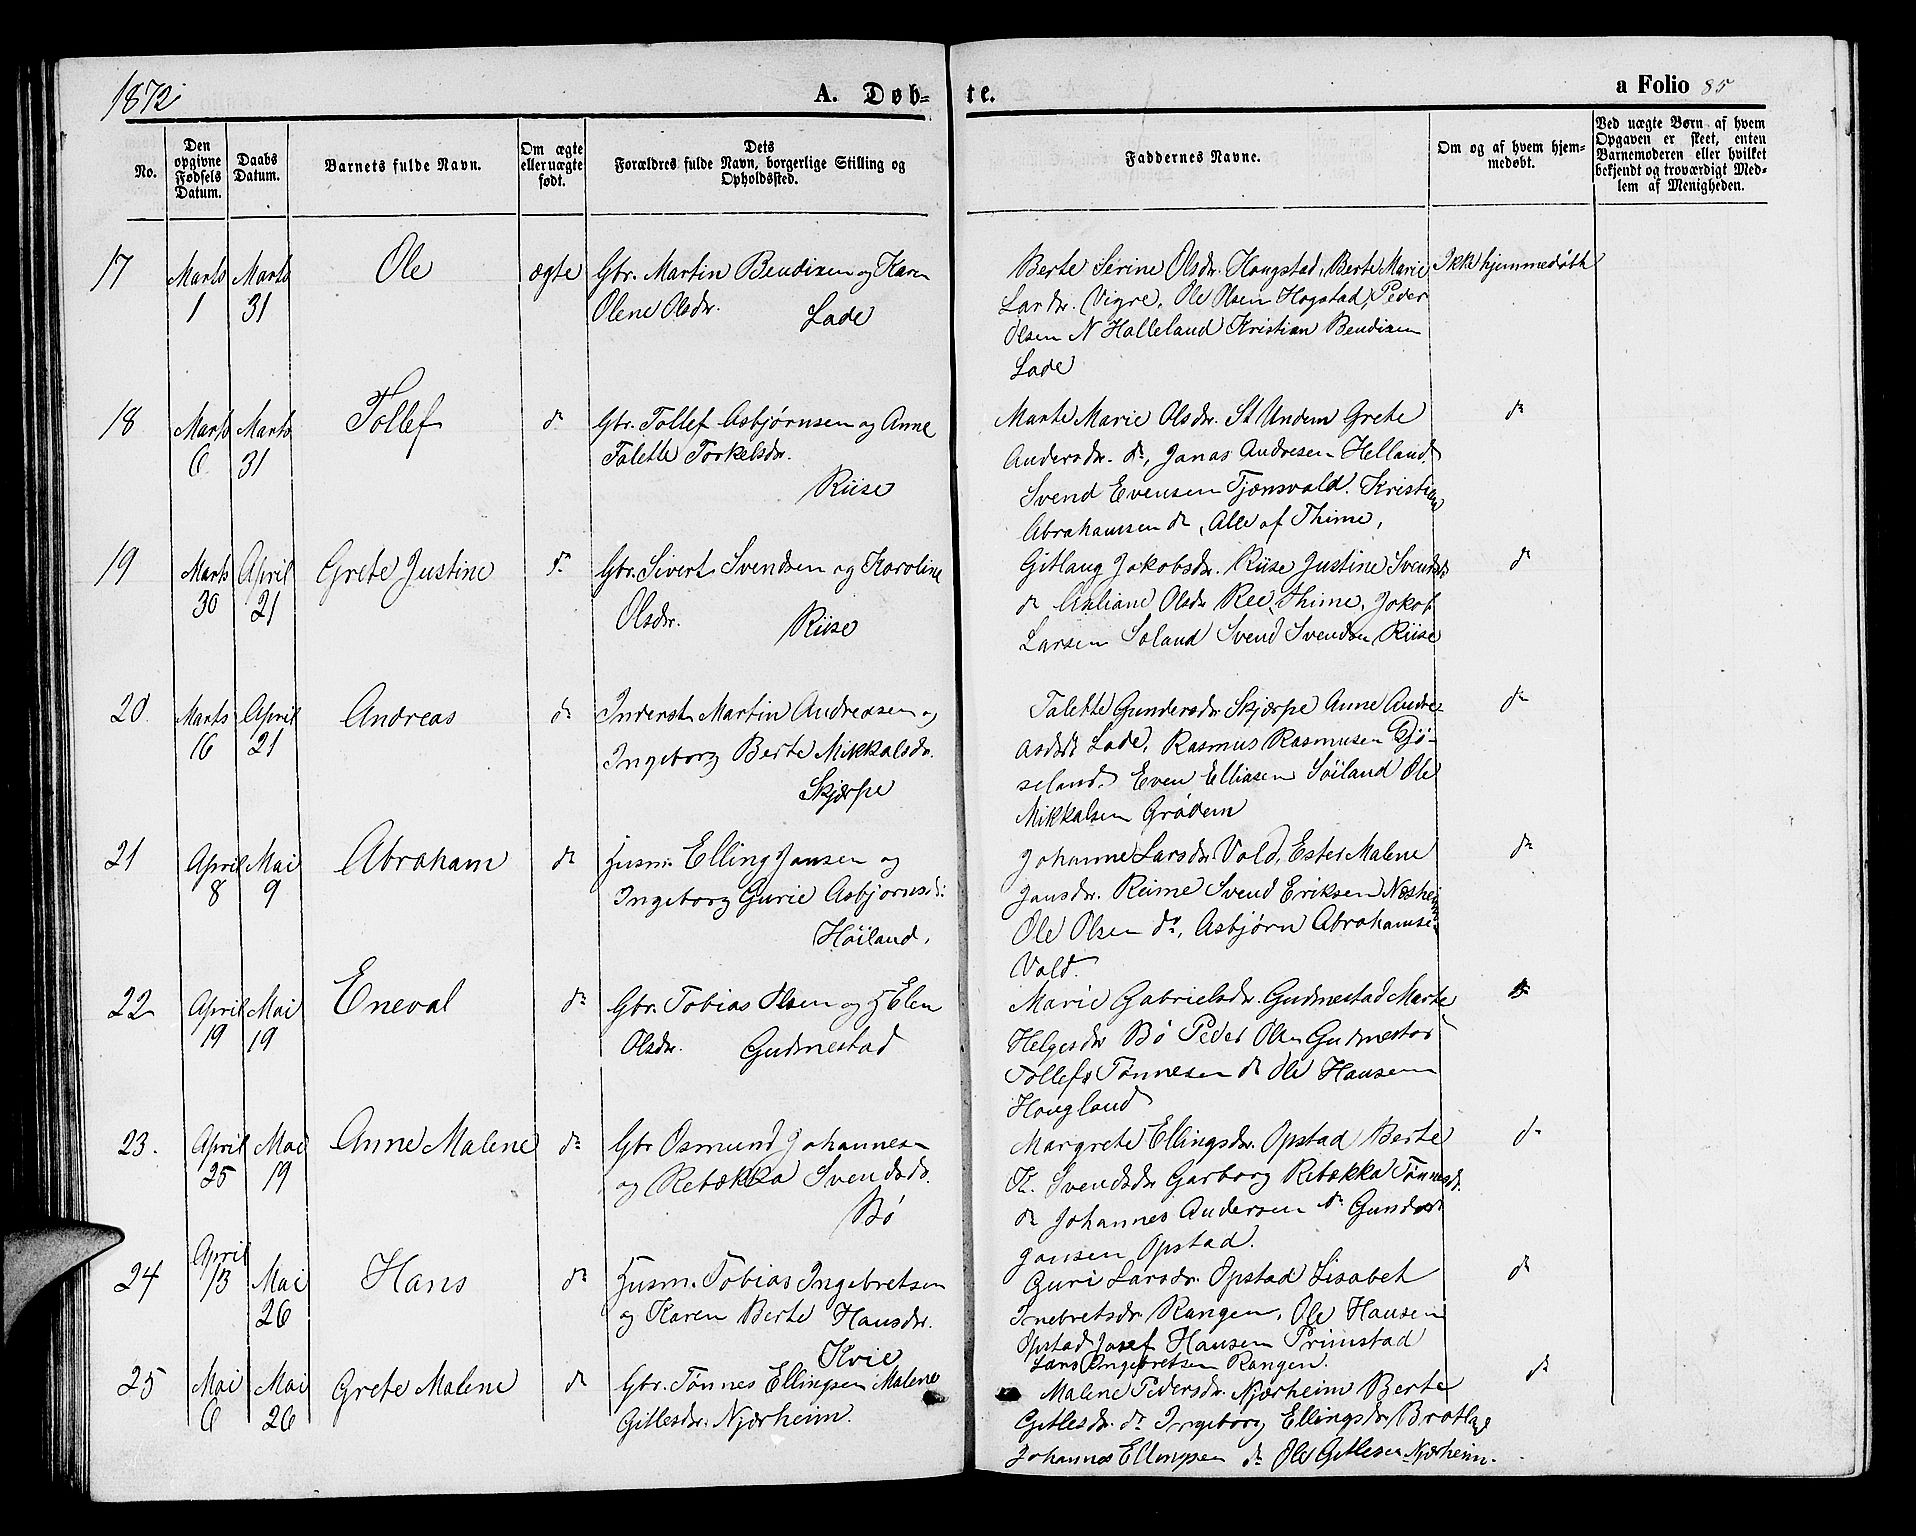 1872
A. Døb-
te.
a Folio 85
No.
Den opgivne Fødsels Datum.
Daabs Datum.
Barnets fulde Navn.
Om ægte eller uægte født.
Dets Forældres fulde Navn, borgerlige Stilling og Opholdssted.
Faddernes Navne.
Om og af hvem hjem-
medøbt.
Ved uægte Børn af hvem
Opgaven er skeet, enten
Barnemoderen eller hvilket
bekjendt og troværdigt Med-
lem af Menigheden.
17 Marts 1 Marts 31 Ole ægte Gbr. Martin Bendixen og Karen
Olene Olsdr. Lade
Berte Serine Olsdr. Hougstad, Berte Marie
Larsdr. Vigre, Ole Olsen Hogstad, Peder
Olsen N Halleland Kristian Bendixen
Lade
Ikke hjemmedøbt
18 Marts 6 Marts 31 Tollef do Gbr. Tollef Asbjørnsen og Anne
Talette Torkelsdr.
Riise
Marte Marie Olsdr. St Undem Grete
Andersdr. do, Janas Andresen Helland
Svend Evensen Tjønsvold. Kristian
Abrahamsen do, Alle af Thime,
do
19 Marts 30 April 21 Grete Justine do Gbr. Sivert Svendsen og Karoline
Olsdr. Riise
Gitlaug Jakobsdr. Riise Justine Svendsdr
do Olsdr Ree, Thime, Jakob
Larsen Soland Svend Svendsen Riise
do
20. Marts 16 April 21 Andreas do Inderst Martin Andreasen og
Ingeborg Berte Mikkalsdr.
Skjærpe
Talette Gundersdr Skjærpe Anne Andre-
asdtr Lade, Rasmus Rasmusen Gjø-
seland, Even Elliasen Søiland Ole
Mikkalsen Grødem
do
21 April 8 Mai 9 Abraham do Husm. Elling Jansen og
Ingeborg Gurie Asbjørnsd:
Høiland,
Johanne Larsdr. Vold, Ester Malene
Jansdr. Reime Svend Eriksen Næsheim
Ole Olsen do, Asbjørn Abrahamse-
Vold.
do
22 April 19 Mai 19 Eneval do Gbr. Tobias Olsen og Helen
Olsdr. Gudmestad
Marie Gabrielsdr. Gudmestad Marte
Helgesdr Bø Peder Olsen Gudmestad
Tollef Tønnesen do Ole Hansen
Hougland
do
23. April 25 Mai 19 Anne Malene do Gbr Osmund Johannesen
og Rebækka Svendsdr.
Bø
Margrete Ellingsdr. Opstad Berte
K. Svendsdr Garborg Rebækka Tønnesdr.
do Johannes Andersen do Gunder
Jansen Opstad.
do
24 April 13 Mai 26 Hans do Husm. Tobias Ingebretsen
og Karen Berte Hansdr.
Kvie
Guri Larsdr. Opstad Lisabet
Inebretsdr. Rangen, Ole Hansen
Opstad Josef Hansen Primstad
Lars Ingebretsen Rangen.
do
25 Mai 6 Mai 26 Grete Malene do Gbr. Tønnes Ellingsen Malene
Gitlesdr. Njærheim.
Malene Pedersdr. Njærheim Berte
Gitlesdr. do Ingeborg Ellingsdr.
Johannes Ellingsen do Ole Gitlesen Njærheim.
do